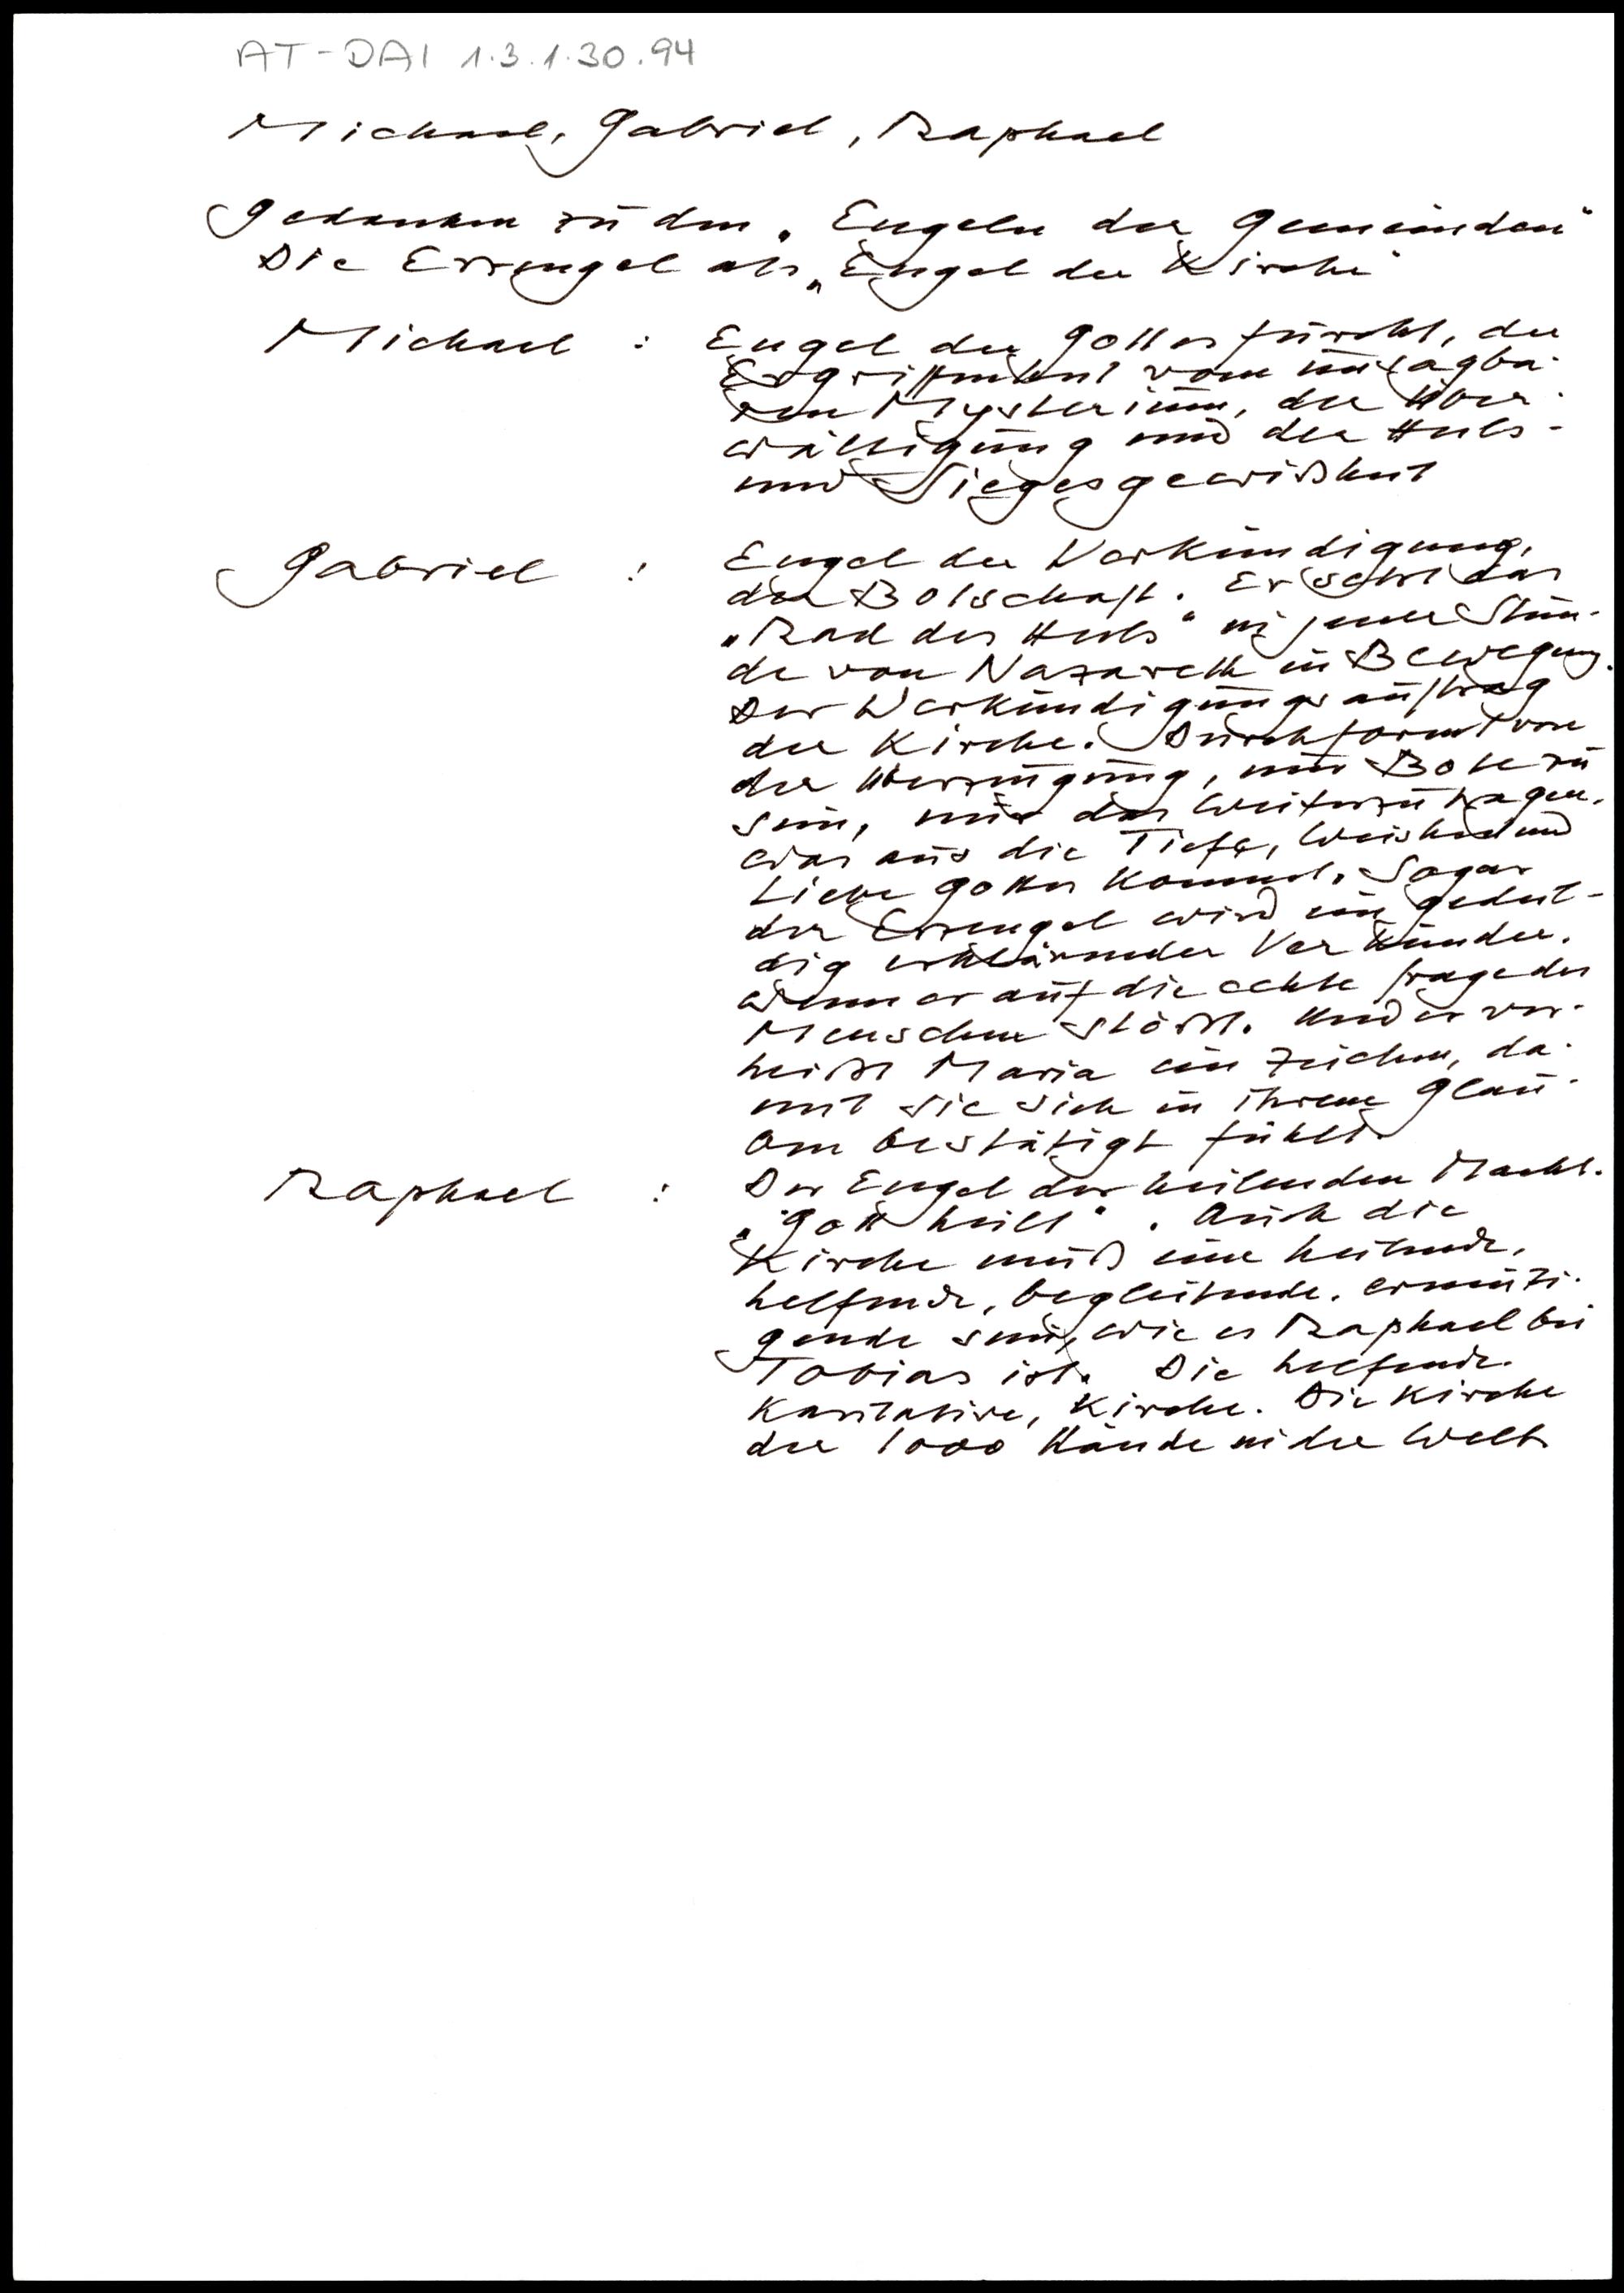 AT-DAI 1.3.1.30.94
Michael, Gabriel, Raphael
Gedanken zu den „Engeln der Gemeinden"
Die Erzengel als „Engel der Kirche"
Michael : Engel der Gottesfurcht, der
Ergriffenheit vom unsagba-
ren Mysterium, der Über-
wältigung und der Heils-
und Siegesgewißheit
Gabriel : Engel der Verkündigung,
der Botschaft. Er setzt das
„Rad des Heils" in jener Stun-
de von Nazareth in Bewegung.
Der Verkündigungsauftrag
der Kirche. Durchformt von
der Überzeugung, nur Bote zu
sein, nur das weiterzutragen,
was aus die Tiefe, Weisheit und
Liebe Gottes kommt. Sogar
der Erzengel wird ein gedul-
dig erklärender Verkünder,
wenn er auf die echte Frage des
Menschen stößt. Und er ver-
heißt Maria ein Zeichen, da-
mit sie sich in ihrem Glau-
ben bestätigt fühlt.
Raphael : Der Engel der heilenden Macht.
„Gott heilt". Auch die
Kirche muß eine heilende,
helfende, begleitende, ermuti-
gende sein, wie es Raphael bei
Tobias ist. Die helfende,
karitative, Kirche. Die Kirche
der 1000 Hände in der Welt